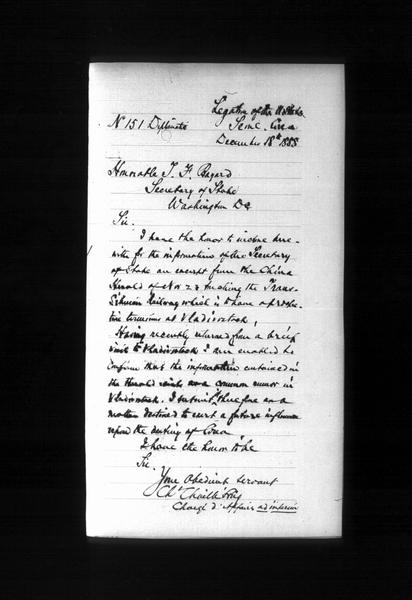 Legation of the U States
Nº 151 Diplomatic Seoul Corea
December 18th 1888
Honorable T. F. Bayard
Secretary of State
Washington DC
Sir.
I have the honor to inclose here-
with for the information of the Secretary
of State an excerpt from the China
Herald of Nov 28 touching the Trans-
Siberian Railway which is to have a
terminus at Vladivostock.
Having recently returned from a brief
visit to Vladivostock I am enabled to
confirm that the information contained in
the Herald was a common rumor in
Vladivostock. I submit therefore as a
matter destined to exert a future influence
upon the destiny of Corea
I have the honor to be
Sir.
Your Obedient servant
Ch Chaillé Long
Chargé d'Affaires ad interim